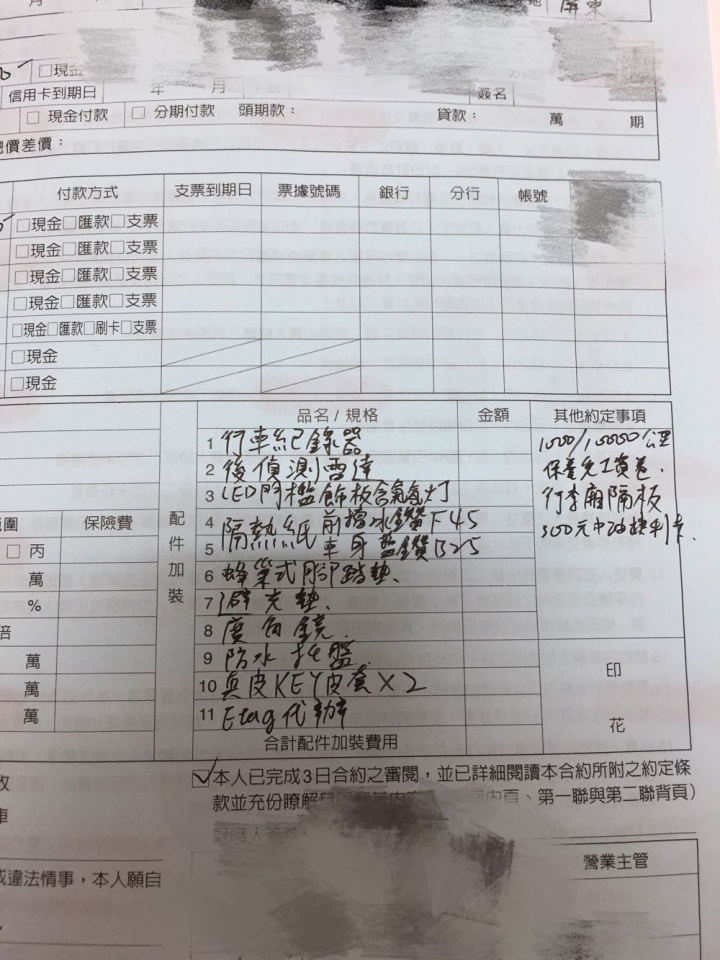 月
屏東
□現金
信用卡到期日 年 月 簽名
□ 現金付款 □ 分期付款 頭期款： 貸款： 萬 期
總價差價：
付款方式 支票到期日 票據號碼 銀行 分行 帳號
□現金□匯款□支票
□現金□匯款□支票
□現金□匯款□支票
□現金□匯款□支票
□現金□匯款□刷卡□支票
□現金
□現金
品名 / 規格 金額 其他約定事項
1 行車紀錄器 1000/10000公里
2 後偵測雷達 保養免工資卷.
3 LED門檻飾板含氣氛灯 行李廂隔板
4 隔熱紙 前擋冰鑽F45 500元中油捷利卡.
5 車身藍鑽B25
6 蜂巢式腳踏墊、
7 避光墊、
8 廣角鏡.
9 防水托盤.
10 真皮KEY皮套×2
11 Etag代辦
合計配件加裝費用
配件加裝
範圍 保險費
□ 丙
萬
%
倍
萬
萬
萬
印
花
☑本人已完成3日合約之審閱，並已詳細閱讀本合約所附之約定條
款並充份瞭解 內頁、第一聯與第二聯背頁）
訂購人簽
營業主管
改
車
或違法情事，本人願自